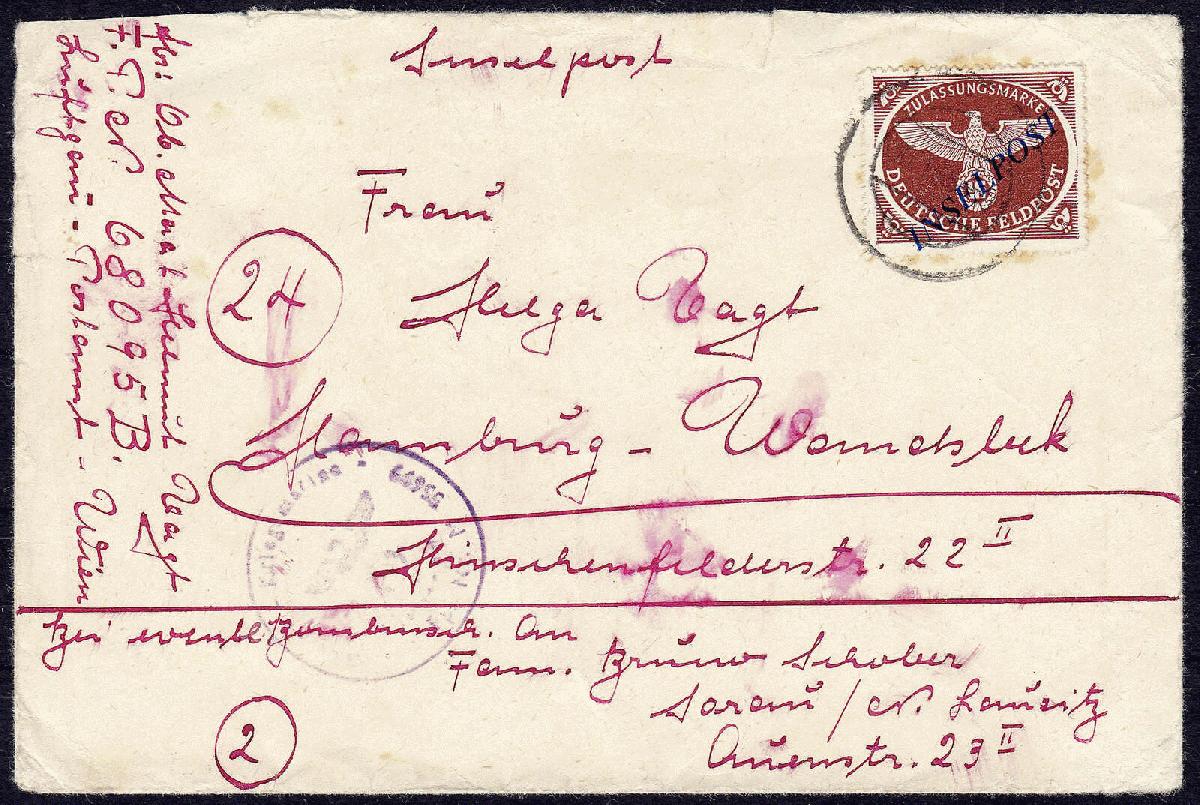 Inselpost
ZULASSUNGSMARKE
DEUTSCHE FELDPOST
INSELPOST
Frau
24
Helga Vagt
Hamburg - Wandsbek
Hinschenfelderstr. 22 II
Bei eventl. Bombensch. An
Fam. Bruno Schober
Sorau / N. Lausitz
2
Auenstr. 23 II
Abs: Ob. Maat Helmut Vagt
F. P. N. 68095 B.
Luftgau - Postamt - Wien